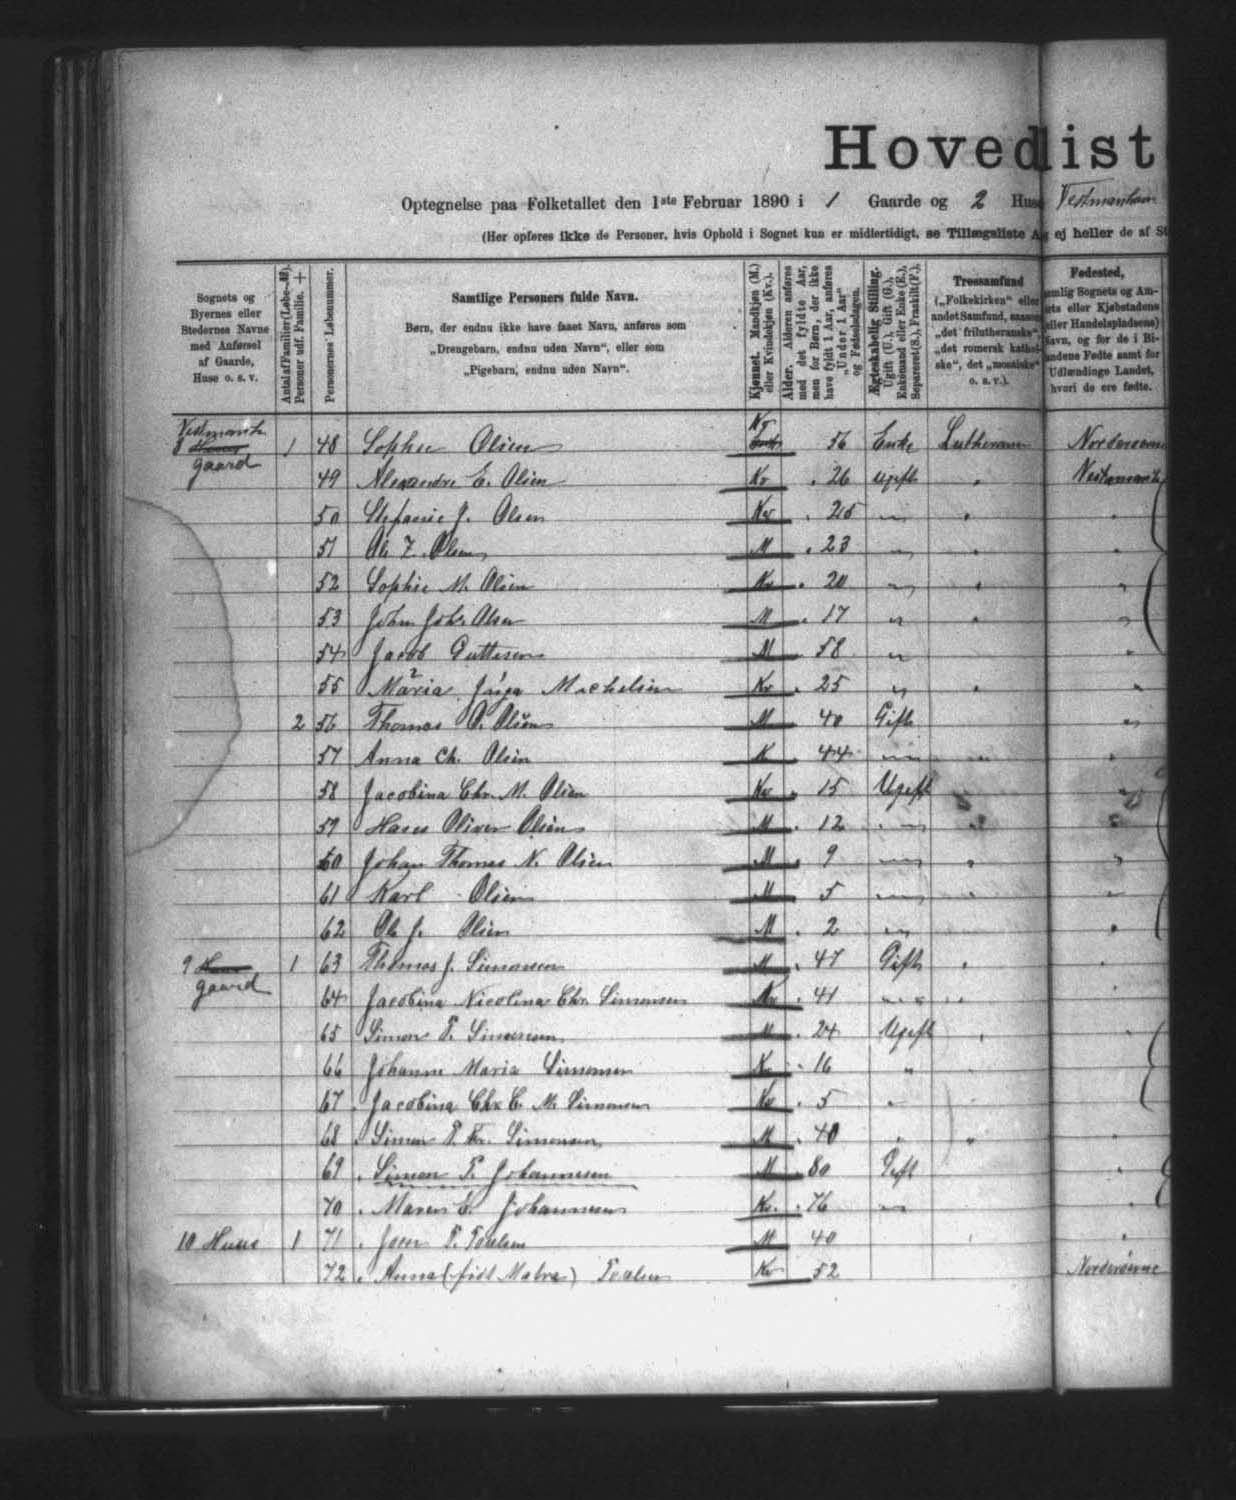 Hovedlist
Optegnelse paa Folketallet den 1ste Februar 1890 i 1 Gaarde og 2 Huse Vestmanhavn
(Her opføres ikke de Personer, hvis Ophold i Sognet kun er midlertidigt, se Tillægsliste A, ej heller de af St
Sognets og Byernes eller Stedernes Navne med Anførsel af Gaarde, Huse o. s. v.
Antal af Familier (Løbe-№). Personer udf. Familie. +
Personernes Løbenummer.
Samtlige Personers fulde Navn.
Børn, der endnu ikke have faaet Navn, anføres som „Drengebarn, endnu uden Navn“, eller som „Pigebarn, endnu uden Navn“.
Kjønnet. Mandkjøn (M.) eller Kvindekjøn (Kv.).
Alder. Alderen anføres med det fyldte Aar, men for Børn, der ikke have fyldt 1 Aar, anføres „Under 1 Aar“ og Fødselsdagen.
Ægteskabelig Stilling. Ugift (U.), Gift (G.), Enkemand eller Enke (E.), Separeret (S.), Fraskilt (F.).
Trossamfund („Folkekirken“ eller andet Samfund, saasom „det frilutheranske“, „det romersk katholske“, det „mosaiske“ o. s. v.).
Fødested, nemlig Sognets og Amtets eller Kjøbstadens (eller Handelspladsens) Navn, og for de i Bilandene Fødte samt for Udlændinge Landet, hvori de ere fødte.
Vestmanh
8 gaard 1 48 Sophie Olsen Kv 56 Enke Lutheraner
49 Alexandre E. Olsen Kv 26 Ugift
50 Stefanie J. Olsen Kv 25
51 Ole Z. Olsen M 23
52 Sophie M. Olsen Kv 20
53 John Joh. Olsen M 17
54 Jacob Guttesen M 58
55 Maria Michelsen Kv 25
2 56 Thomas O. Olsen M 40 Gift
57 Anna Ch. Olsen K 44
58 Jacobina Chr. M. Olsen Kv 15 Ugift
59 Hans Oliver Olsen M 12
60 Johan Thomas N. Olsen M 9
61 Karl Olsen M 5
62 Ole J. Olsen M 2
9 gaard 1 63 Thomas J. Simonsen M 47 Gift
64 Jacobina Nicolina Chr. Simonsen Kv 41
65 Simon T. Simonsen M 24 Ugift
66 Johanne Maria Simonsen Kv 16
67 Jacobina Chr. C. M. Simonsen Kv 5
68 Simon P. Fr. Simonsen M 40
69 Simon T. Johannesen M 80 Gift
70 Maren E. Johannesen Kv. 76
10 Huus 1 71 Joen P. M 40
72 Anna (født) Kv 52 Norderøerne